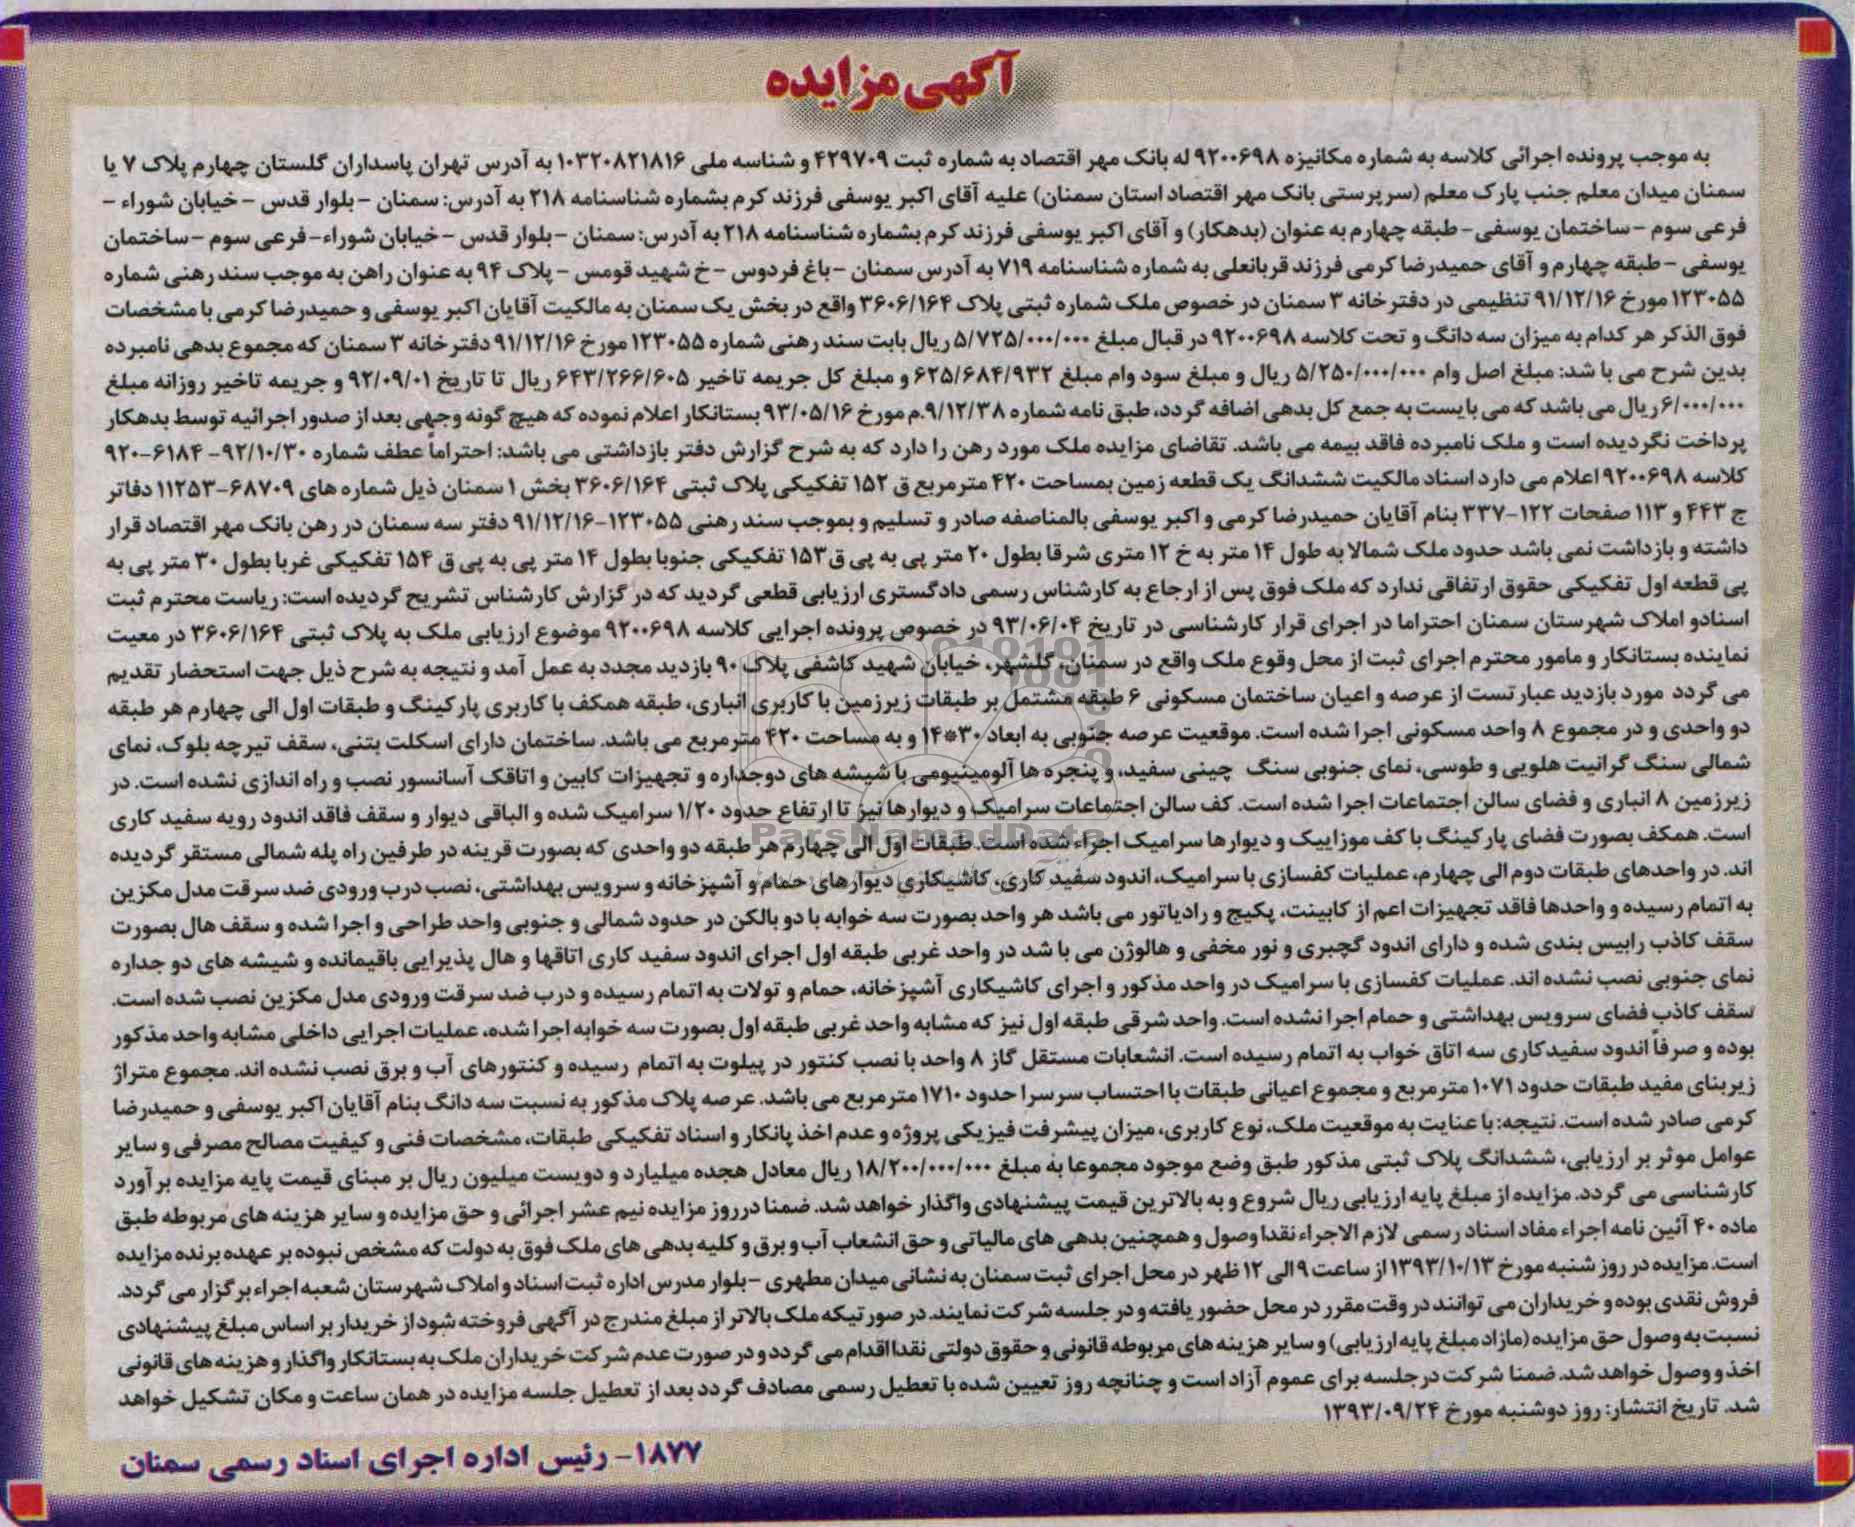 آگهی مزایده
به موجب پرونده اجرائی کلاسه به شماره مکانیزه ۹۲۰۰۶۹۸ له بانک مهر اقتصاد به شماره ثبت ۴۲۹۷۰۹ و شناسه ملی ۱۰۳۲۰۸۲۱۸۱۶ به آدرس تهران پاسداران گلستان چهارم پلاک ۷ یا
سمنان میدان معلم جنب پارک معلم (سرپرستی بانک مهر اقتصاد استان سمنان) علیه آقای اکبر یوسفی فرزند کرم بشماره شناسنامه ۲۱۸ به آدرس: سمنان – بلوار قدس – خیابان شوراء –
فرعی سوم – ساختمان یوسفی – طبقه چهارم به عنوان (بدهکار) و آقای اکبر یوسفی فرزند کرم بشماره شناسنامه ۲۱۸ به آدرس: سمنان – بلوار قدس – خیابان شوراء – فرعی سوم – ساختمان
یوسفی – طبقه چهارم و آقای حمیدرضا کرمی فرزند قربانعلی به شماره شناسنامه ۷۱۹ به آدرس سمنان – باغ فردوس – خ شهید قومس – پلاک ۹۴ به عنوان راهن به موجب سند رهنی شماره
۱۲۳۰۵۵ مورخ ۹۱/۱۲/۱۶ تنظیمی در دفترخانه ۳ سمنان در خصوص ملک شماره ثبتی پلاک ۳۶۰۶/۱۶۴ واقع در بخش یک سمنان به مالکیت آقایان اکبر یوسفی و حمیدرضا کرمی با مشخصات
فوق الذکر هر کدام به میزان سه دانگ و تحت کلاسه ۹۲۰۰۶۹۸ در قبال مبلغ ۵/۷۲۵/۰۰۰/۰۰۰ ریال بابت سند رهنی شماره ۱۲۳۰۵۵ مورخ ۹۱/۱۲/۱۶ دفترخانه ۳ سمنان که مجموع بدهی نامبرده
بدین شرح می با شد: مبلغ اصل وام ۵/۲۵۰/۰۰۰/۰۰۰ ریال و مبلغ سود وام مبلغ ۶۲۵/۶۸۴/۹۳۲ و مبلغ کل جریمه تاخیر ۶۴۳/۲۶۶/۶۰۵ ریال تا تاریخ ۹۲/۰۹/۰۱ و جریمه تاخیر روزانه مبلغ
۶/۰۰۰/۰۰۰ ریال می باشد که می بایست به جمع کل بدهی اضافه گردد، طبق نامه شماره ۹/۱۲/۳۸.م مورخ ۹۳/۰۵/۱۶ بستانکار اعلام نموده که هیچ گونه وجهی بعد از صدور اجرائیه توسط بدهکار
پرداخت نگردیده است و ملک نامبرده فاقد بیمه می باشد. تقاضای مزایده ملک مورد رهن را دارد که به شرح گزارش دفتر بازداشتی می باشد: احتراماً عطف شماره ۹۲/۱۰/۳۰ – ۶۱۸۴-۹۲۰
کلاسه ۹۲۰۰۶۹۸ اعلام می دارد اسناد مالکیت ششدانگ یک قطعه زمین بمساحت ۴۲۰ مترمربع ق ۱۵۲ تفکیکی پلاک ثبتی ۳۶۰۶/۱۶۴ بخش ۱ سمنان ذیل شماره های ۶۸۷۰۹-۱۱۲۵۳ دفاتر
ج ۴۴۳ و ۱۱۳ صفحات ۱۲۲-۳۳۷ بنام آقایان حمیدرضا کرمی و اکبر یوسفی بالمناصفه صادر و تسلیم و بموجب سند رهنی ۱۲۳۰۵۵-۹۱/۱۲/۱۶ دفتر سه سمنان در رهن بانک مهر اقتصاد قرار
داشته و بازداشت نمی باشد حدود ملک شمالا به طول ۱۴ متر به خ ۱۲ متری شرقا بطول ۲۰ متر پی به پی ق ۱۵۳ تفکیکی جنوبا بطول ۱۴ متر پی به پی ق ۱۵۴ تفکیکی غربا بطول ۳۰ متر پی به
پی قطعه اول تفکیکی حقوق ارتفاقی ندارد که ملک فوق پس از ارجاع به کارشناس رسمی دادگستری ارزیابی قطعی گردید که در گزارش کارشناس تشریح گردیده است: ریاست محترم ثبت
اسنادو املاک شهرستان سمنان احتراما در اجرای قرار کارشناسی در تاریخ ۹۳/۰۶/۰۴ در خصوص پرونده اجرایی کلاسه ۹۲۰۰۶۹۸ موضوع ارزیابی ملک به پلاک ثبتی ۳۶۰۶/۱۶۴ در معیت
نماینده بستانکار و مامور محترم اجرای ثبت از محل وقوع ملک واقع در سمنان، گلشهر، خیابان شهید کاشفی پلاک ۹۰ بازدید مجدد به عمل آمد و نتیجه به شرح ذیل جهت استحضار تقدیم
می گردد مورد بازدید عبارتست از عرصه و اعیان ساختمان مسکونی ۶ طبقه مشتمل بر طبقات زیرزمین با کاربری انباری، طبقه همکف با کاربری پارکینگ و طبقات اول الی چهارم هر طبقه
دو واحدی و در مجموع ۸ واحد مسکونی اجرا شده است. موقعیت عرصه جنوبی به ابعاد ۳۰*۱۴ و به مساحت ۴۲۰ مترمربع می باشد. ساختمان دارای اسکلت بتنی، سقف تیرچه بلوک، نمای
شمالی سنگ گرانیت هلویی و طوسی، نمای جنوبی سنگ چینی سفید، و پنجره ها آلومینیومی با شیشه های دوجداره و تجهیزات کابین و اتاقک آسانسور نصب و راه اندازی نشده است. در
زیرزمین ۸ انباری و فضای سالن اجتماعات اجرا شده است. کف سالن اجتماعات سرامیک و دیوارها نیز تا ارتفاع حدود ۱/۲۰ سرامیک شده و الباقی دیوار و سقف فاقد اندود رویه سفید کاری
است. همکف بصورت فضای پارکینگ با کف موزاییک و دیوارها سرامیک اجراء شده است. طبقات اول الی چهارم هر طبقه دو واحدی که بصورت قرینه در طرفین راه پله شمالی مستقر گردیده
اند. در واحدهای طبقات دوم الی چهارم، عملیات کفسازی با سرامیک، اندود سفید کاری، کاشیکاری دیوارهای حمام و آشپزخانه و سرویس بهداشتی، نصب درب ورودی ضد سرقت مدل مکزین
به اتمام رسیده و واحدها فاقد تجهیزات اعم از کابینت، پکیج و رادیاتور می باشد هر واحد بصورت سه خوابه با دو بالکن در حدود شمالی و جنوبی واحد طراحی و اجرا شده و سقف هال بصورت
سقف کاذب رابیس بندی شده و دارای اندود گچبری و نور مخفی و هالوژن می با شد در واحد غربی طبقه اول اجرای اندود سفید کاری اتاقها و هال پذیرایی باقیمانده و شیشه های دو جداره
نمای جنوبی نصب نشده اند. عملیات کفسازی با سرامیک در واحد مذکور و اجرای کاشیکاری آشپزخانه، حمام و تولات به اتمام رسیده و درب ضد سرقت ورودی مدل مکزین نصب شده است.
سقف کاذب فضای سرویس بهداشتی و حمام اجرا نشده است. واحد شرقی طبقه اول نیز که مشابه واحد غربی طبقه اول بصورت سه خوابه اجرا شده، عملیات اجرایی داخلی مشابه واحد مذکور
بوده و صرفاً اندود سفیدکاری سه اتاق خواب به اتمام رسیده است. انشعابات مستقل گاز ۸ واحد با نصب کنتور در پیلوت به اتمام رسیده و کنتورهای آب و برق نصب نشده اند. مجموع متراژ
زیربنای مفید طبقات حدود ۱۰۷۱ مترمربع و مجموع اعیانی طبقات با احتساب سرسرا حدود ۱۷۱۰ مترمربع می باشد. عرصه پلاک مذکور به نسبت سه دانگ بنام آقایان اکبر یوسفی و حمیدرضا
کرمی صادر شده است. نتیجه: با عنایت به موقعیت ملک، نوع کاربری، میزان پیشرفت فیزیکی پروژه و عدم اخذ پانکار و اسناد تفکیکی طبقات، مشخصات فنی و کیفیت مصالح مصرفی و سایر
عوامل موثر بر ارزیابی، ششدانگ پلاک ثبتی مذکور طبق وضع موجود مجموعا به مبلغ ۱۸/۲۰۰/۰۰۰/۰۰۰ ریال معادل هجده میلیارد و دویست میلیون ریال بر مبنای قیمت پایه مزایده برآورد
کارشناسی می گردد. مزایده از مبلغ پایه ارزیابی ریال شروع و به بالاترین قیمت پیشنهادی واگذار خواهد شد. ضمنا درروز مزایده نیم عشر اجرائی و حق مزایده و سایر هزینه های مربوطه طبق
ماده ۴۰ آئین نامه اجراء مفاد اسناد رسمی لازم الاجراء نقدا وصول و همچنین بدهی های مالیاتی و حق انشعاب آب و برق و کلیه بدهی های ملک فوق به دولت که مشخص نبوده بر عهده برنده مزایده
است. مزایده در روز شنبه مورخ ۱۳۹۳/۱۰/۱۳ از ساعت ۹ الی ۱۲ ظهر در محل اجرای ثبت سمنان به نشانی میدان مطهری – بلوار مدرس اداره ثبت اسناد و املاک شهرستان شعبه اجراء برگزار می گردد.
فروش نقدی بوده و خریداران می توانند در وقت مقرر در محل حضور یافته و در جلسه شرکت نمایند. در صورتیکه ملک بالاتر از مبلغ مندرج در آگهی فروخته شود از خریدار بر اساس مبلغ پیشنهادی
نسبت به وصول حق مزایده (مازاد مبلغ پایه ارزیابی) و سایر هزینه های مربوطه قانونی و حقوق دولتی نقدا اقدام می گردد و در صورت عدم شرکت خریداران ملک به بستانکار واگذار و هزینه های قانونی
اخذ و وصول خواهد شد. ضمنا شرکت در جلسه برای عموم آزاد است و چنانچه روز تعیین شده با تعطیل رسمی مصادف گردد بعد از تعطیل جلسه مزایده در همان ساعت و مکان تشکیل خواهد
شد. تاریخ انتشار: روز دوشنبه مورخ ۱۳۹۳/۰۹/۲۴
۱۸۷۷- رئیس اداره اجرای اسناد رسمی سمنان
ParsNamadData